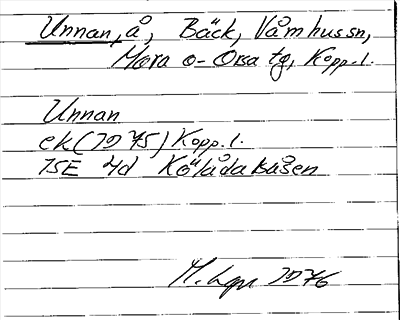 Unnan, å, Bäck, Våmhus sn,
Mora o- Orsa tg, Kopp. l.
Unnan
ek (1975) Kopp. l.
15E 4d Kölådabåsen
M. 1976